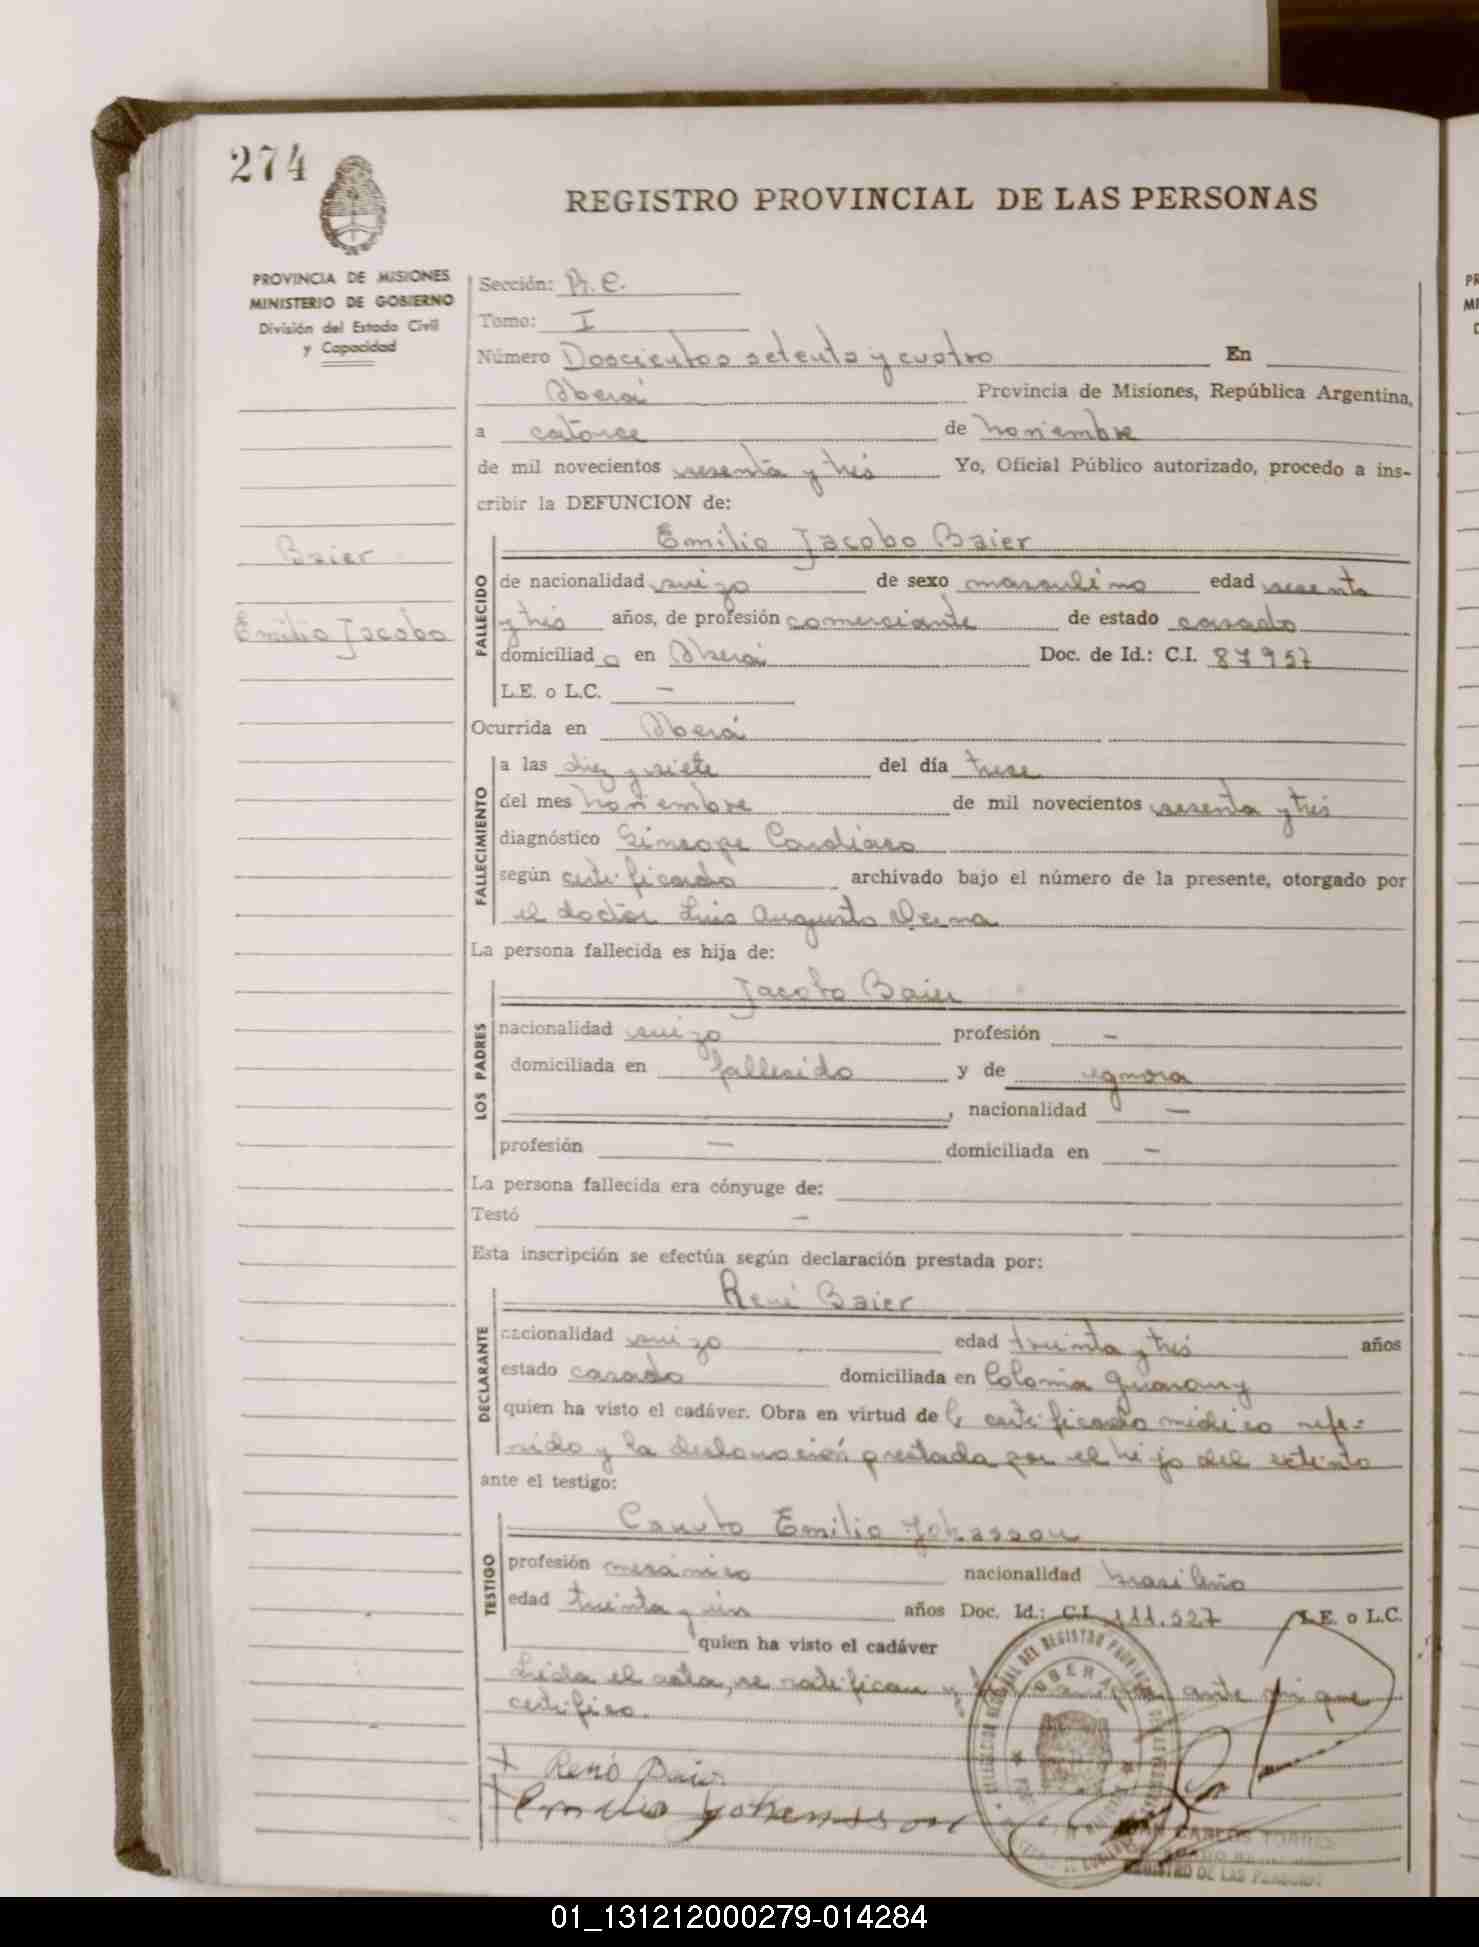 274
REGISTRO PROVINCIAL DE LAS PERSONAS
PROVINCIA DE MISIONES
MINISTERIO DE GOBIERNO
División del Estado Civil
y Capacidad
Baier
Emilio Jacobo
Sección: Pr. C.
Tomo: I
Número Doscientos setenta y cuatro En
Oberá Provincia de Misiones, República Argentina,
a catorce de noviembre
de mil novecientos sesenta y tres Yo, Oficial Público autorizado, procedo a ins-
cribir la DEFUNCION de:
FALLECIDO
Emilio Jacobo Baier
de nacionalidad suizo de sexo masculino edad sesenta
y tres años, de profesión comerciante de estado casado
domiciliado en Oberá Doc. de Id.: C.I. 87957
L.E. o L.C. —
Ocurrida en Oberá
FALLECIMIENTO
a las diez y siete del día trece
del mes noviembre de mil novecientos sesenta y tres
diagnóstico Síncope Cardíaco
según certificado archivado bajo el número de la presente, otorgado por
el doctor Luis Augusto Derna
La persona fallecida es hija de:
LOS PADRES
Jacobo Baier
nacionalidad suizo profesión —
domiciliada en fallecido y de ignora
, nacionalidad —
profesión — domiciliada en —
La persona fallecida era cónyuge de:
Testó —
Esta inscripción se efectúa según declaración prestada por:
DECLARANTE
René Baier
nacionalidad suizo edad treinta y tres años
estado casado domiciliada en Colonia Guarany
quien ha visto el cadáver. Obra en virtud de certificado médico refe-
rido y la declaración prestada por el hijo del extinto
ante el testigo:
TESTIGO
Canuto Emilio Johasson
profesión mecánico nacionalidad brasileño
edad treinta y un años Doc. Id.: C.I. 111.527 L.E. o L.C.
quien ha visto el cadáver
Leída el acta, se ratifican y ante mi que
certifico.
René Baier
Emilio Johansson
JUAN CARLOS TORRES
REGISTRO DE LAS PERSONAS
OBERA
01_131212000279-014284